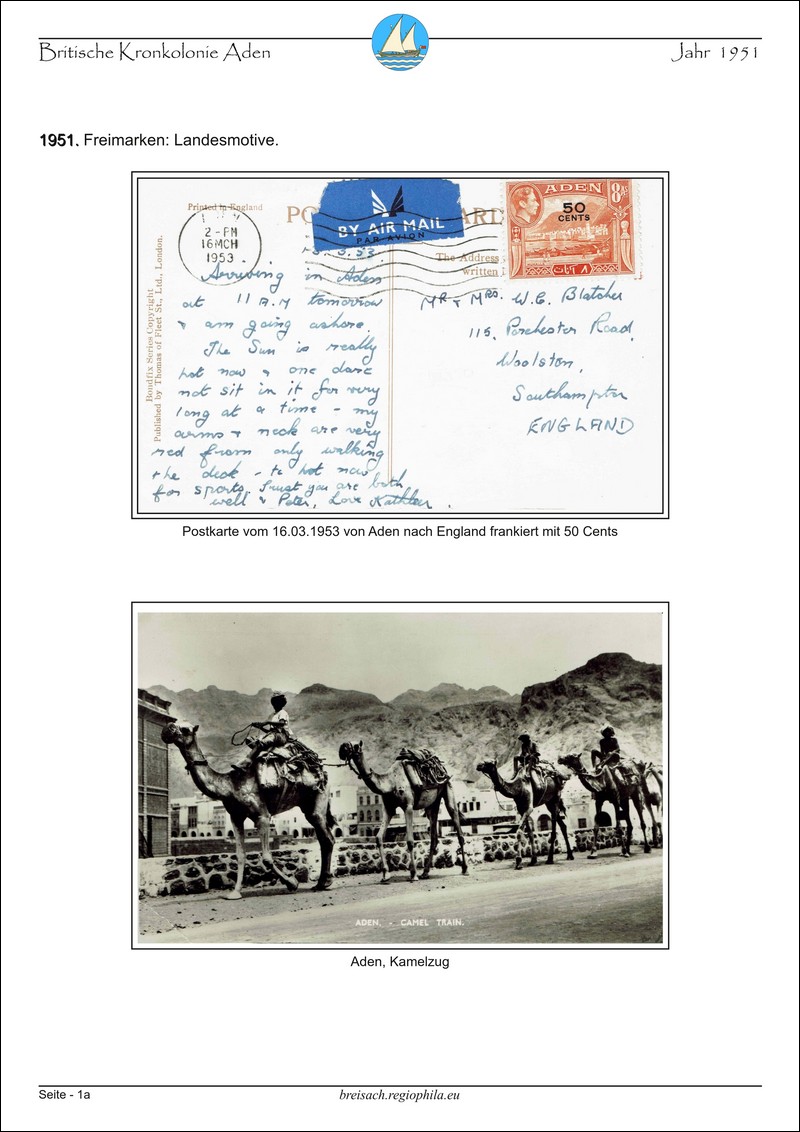 Britische Kronkolonie Aden
Jahr 1951
1951. Freimarken: Landesmotive.
Printed in England
2-PM
16 MCH
1953
BY AIR MAIL
PAR AVION
ADEN
8 AS
50
CENTS
٨ آنات
The Address
written
Bondfix Series Copyright
Published by Thomas of Fleet St., Ltd., London.
15.3.53.
Arriving in Aden
at 11 A.M tomorrow
& am going ashore.
The Sun is really
hot now & one dare
not sit in it for very
long at a time - my
arms & neck are very
red from only walking
the deck - to hot now
for sports. Trust you are both
well & Peter, Love Kathleen.
MR & MRS. W.C. Blatcher
115, Porchester Road,
Woolston,
Southampton
ENGLAND
Postkarte vom 16.03.1953 von Aden nach England frankiert mit 50 Cents
ADEN. - CAMEL TRAIN.
Aden, Kamelzug
Seite - 1a
breisach.regiophila.eu